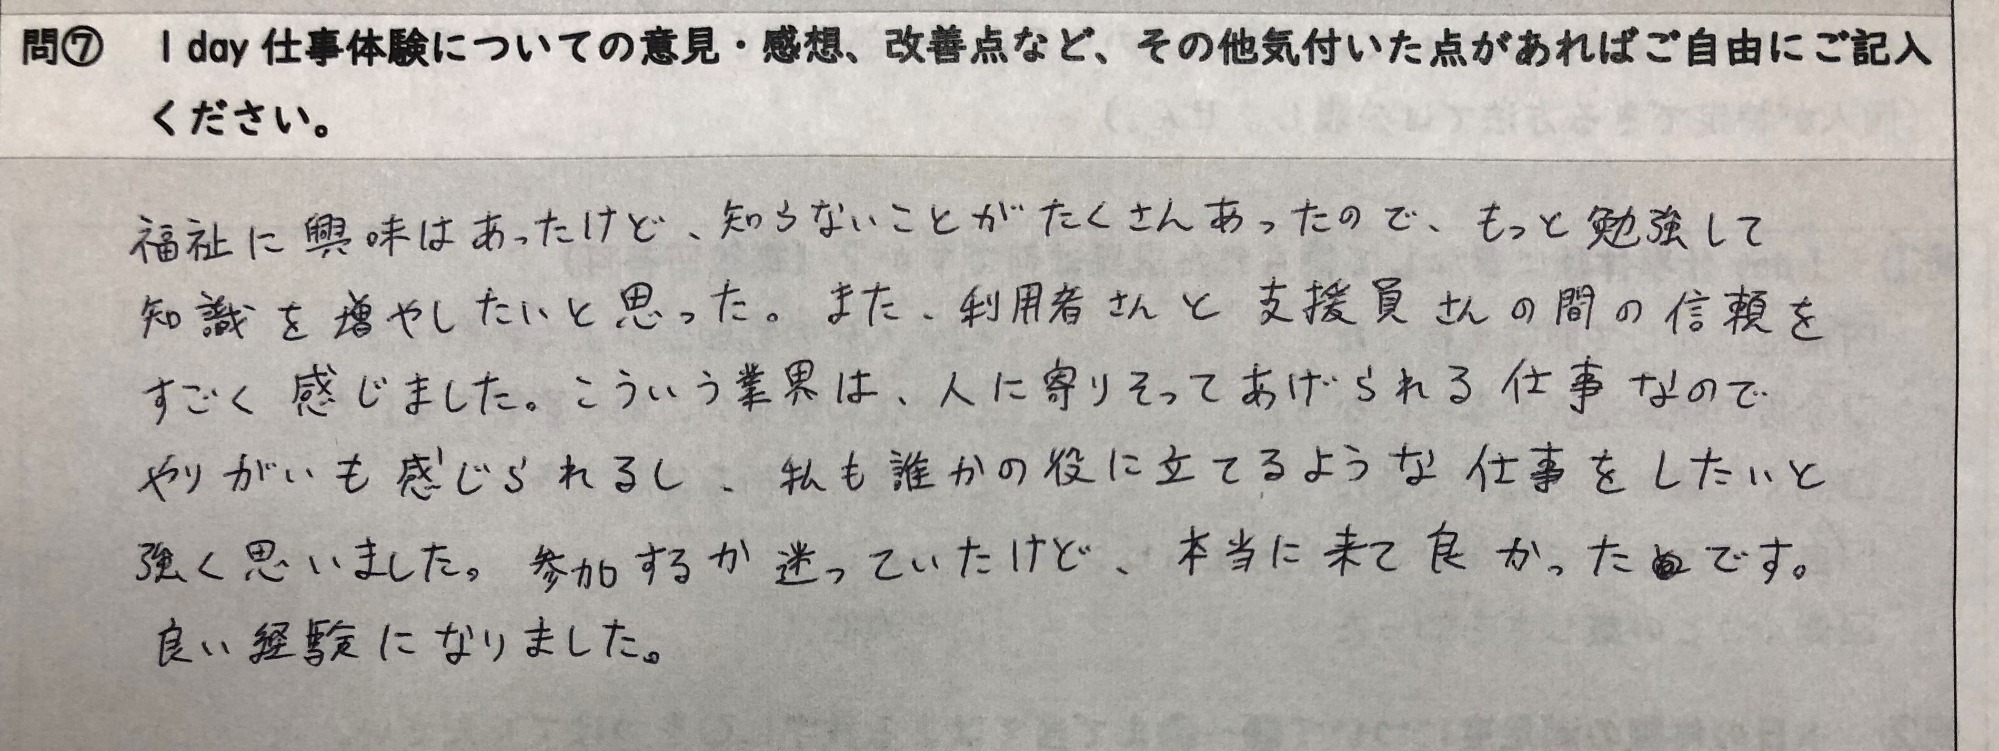 問⑦　1 day 仕事体験についての意見・感想、改善点など、その他気付いた点があればご自由にご記入
ください。
福祉に興味はあったけど、知らないことがたくさんあったので、もっと勉強して
知識を増やしたいと思った。また、利用者さんと支援員さんの間の信頼を
すごく感じました。こういう業界は、人に寄りそってあげられる仕事なので
やりがいも感じられるし、私も誰かの役に立てるような仕事をしたいと
強く思いました。参加するか迷っていたけど、本当に来て良かったです。
良い経験になりました。